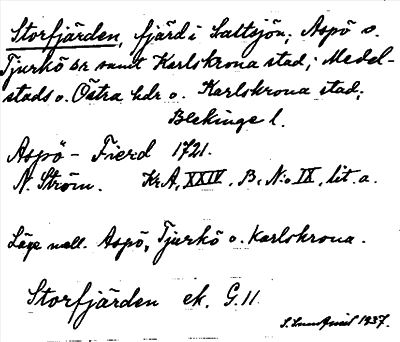 Storfjärden, fjärd i Saltsjön; Aspö o.
Tjurkö sr samt Karlskrona stad; Medel-
stads o. Östra hdr o. Karlskrona stad;
Blekinge l.
Aspö - Fierd 1721.
N. Ström. Kr.A, XXIV, B, N:o IX, lit. a.
Läge mell. Aspö, Tjurkö o. Karlskrona.
Storfjärden ek. G.11.
S. 1937.